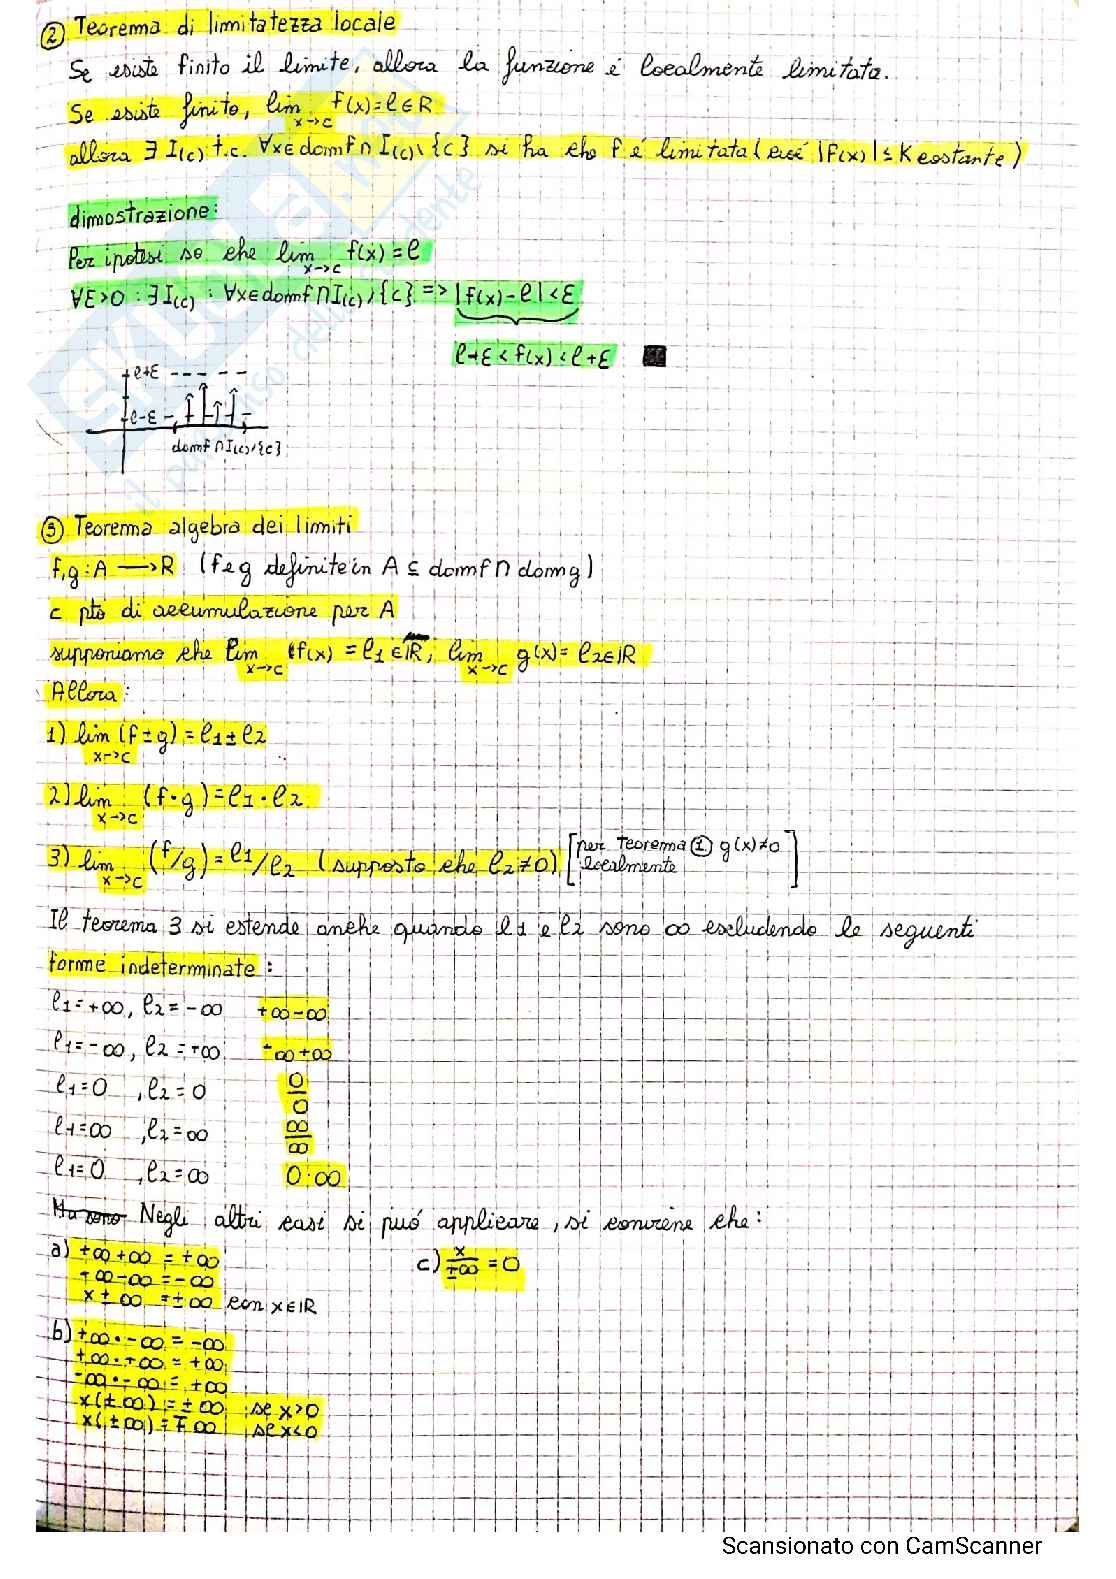 ② Teorema di limitatezza locale
Se esiste finito il limite, allora la funzione é localmente limitata.
Se esiste finito, lim f(x)=l∈R
x->c
allora ∃ I(c) t.c. ∀x∈domf∩I(c)\{c} si ha che f é limitata (cioé |f(x)|≤K costante)
dimostrazione:
Per ipotesi so che lim f(x)=l
x->c
∀ε>0 : ∃I(c) : ∀x∈domf∩I(c)/{c} => |f(x)-l|<ε
l-ε<f(x)<l+ε
l+ε
l-ε
domf∩I(c)/{c}
③ Teorema algebra dei limiti
f,g:A→R (f e g definite in A ⊆ domf∩domg)
c pto di accumulazione per A
supponiamo che lim f(x)=l1∈R; lim g(x)=l2∈R
x->c x->c
Allora:
1) lim (f±g)=l1±l2
x->c
2) lim (f·g)=l1·l2
x->c
3) lim (f/g)=l1/l2 (supposto che l2≠0) [per teorema ① g(x)≠0 localmente]
x->c
Il teorema 3 si estende anche quando l1 e l2 sono ∞ escludendo le seguenti
forme indeterminate:
l1=+∞, l2=-∞ +∞-∞
l1=-∞, l2=+∞ -∞+∞
l1=0 , l2=0 0/0
l1=∞ , l2=∞ ∞/∞
l1=0 , l2=∞ 0·∞
Ma sono Negli altri casi si puó applicare, si conviene che:
a) +∞+∞=+∞
-∞-∞=-∞
x±∞=±∞ con x∈R
c) x/±∞=0
b) +∞·-∞=-∞
+∞·+∞=+∞
-∞·-∞=+∞
x(±∞)=±∞ se x>0
x(±∞)=∓∞ se x<0
Scansionato con CamScanner